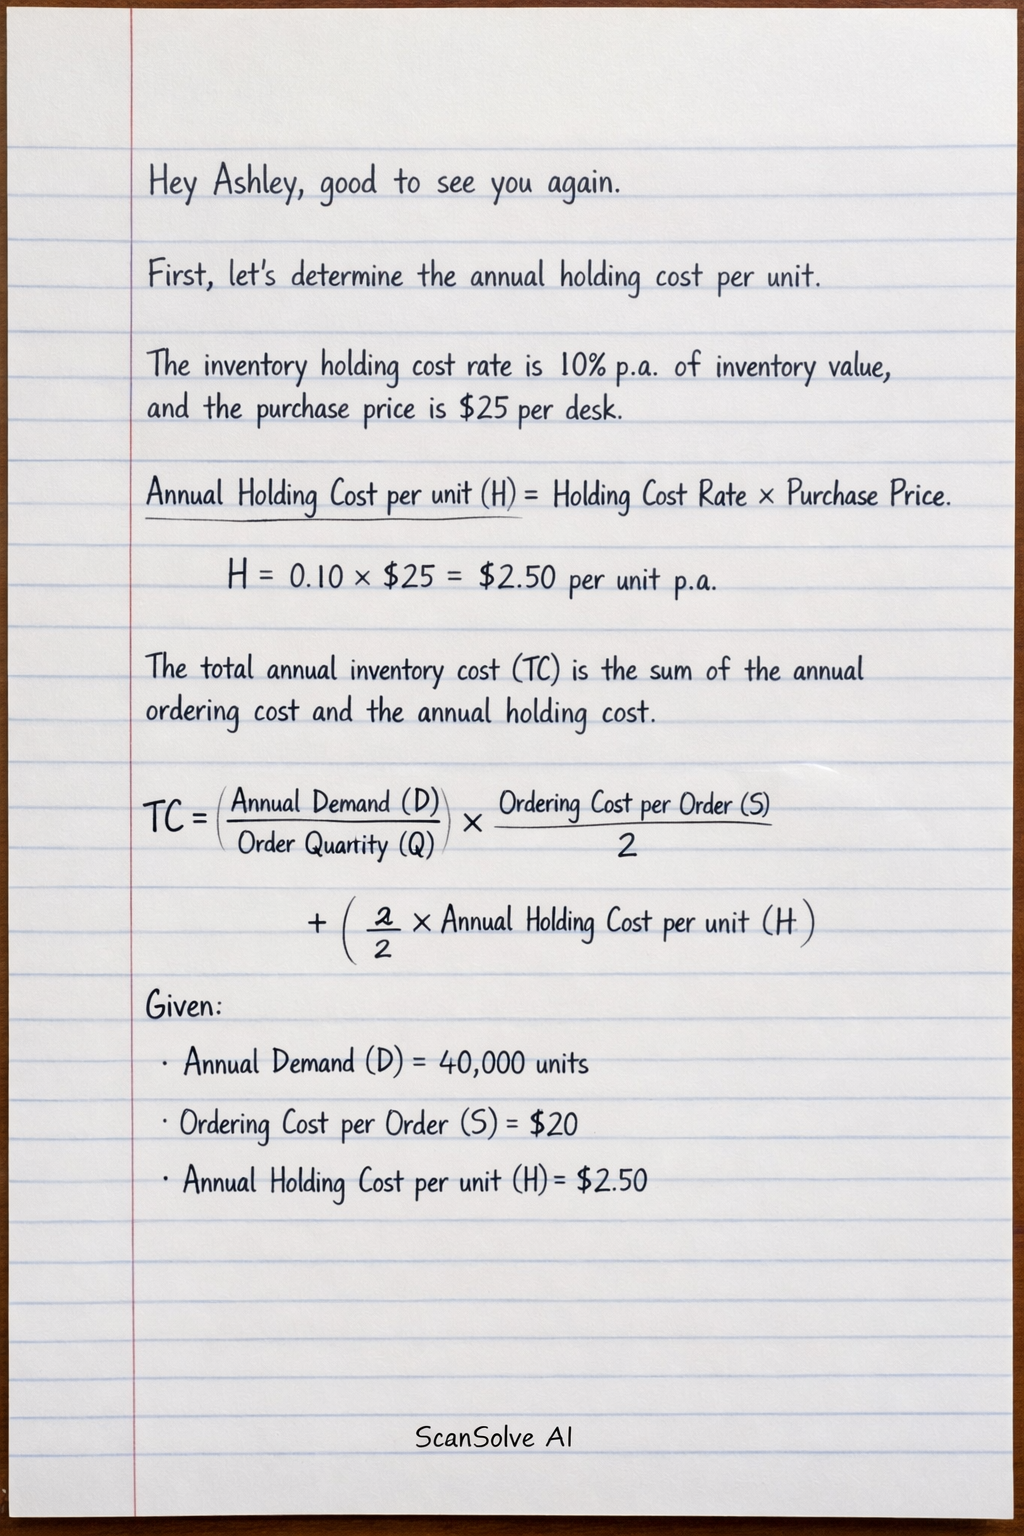 Hey Ashley, good to see you again.
First, let's determine the annual holding cost per unit.
The inventory holding cost rate is 10% p.a. of inventory value,
and the purchase price is $25 per desk.
Annual Holding Cost per unit (H) = Holding Cost Rate × Purchase Price.
H = 0.10 × $25 = $2.50 per unit p.a.
The total annual inventory cost (TC) is the sum of the annual
ordering cost and the annual holding cost.
TC = (Annual Demand (D) / Order Quartity (Q)) × Ordering Cost per Order (S) / 2
+ (2/2 × Annual Holding Cost per unit (H)
Given:
· Annual Demand (D) = 40,000 units
· Ordering Cost per Order (S) = $20
· Annual Holding Cost per unit (H) = $2.50
ScanSolve AI